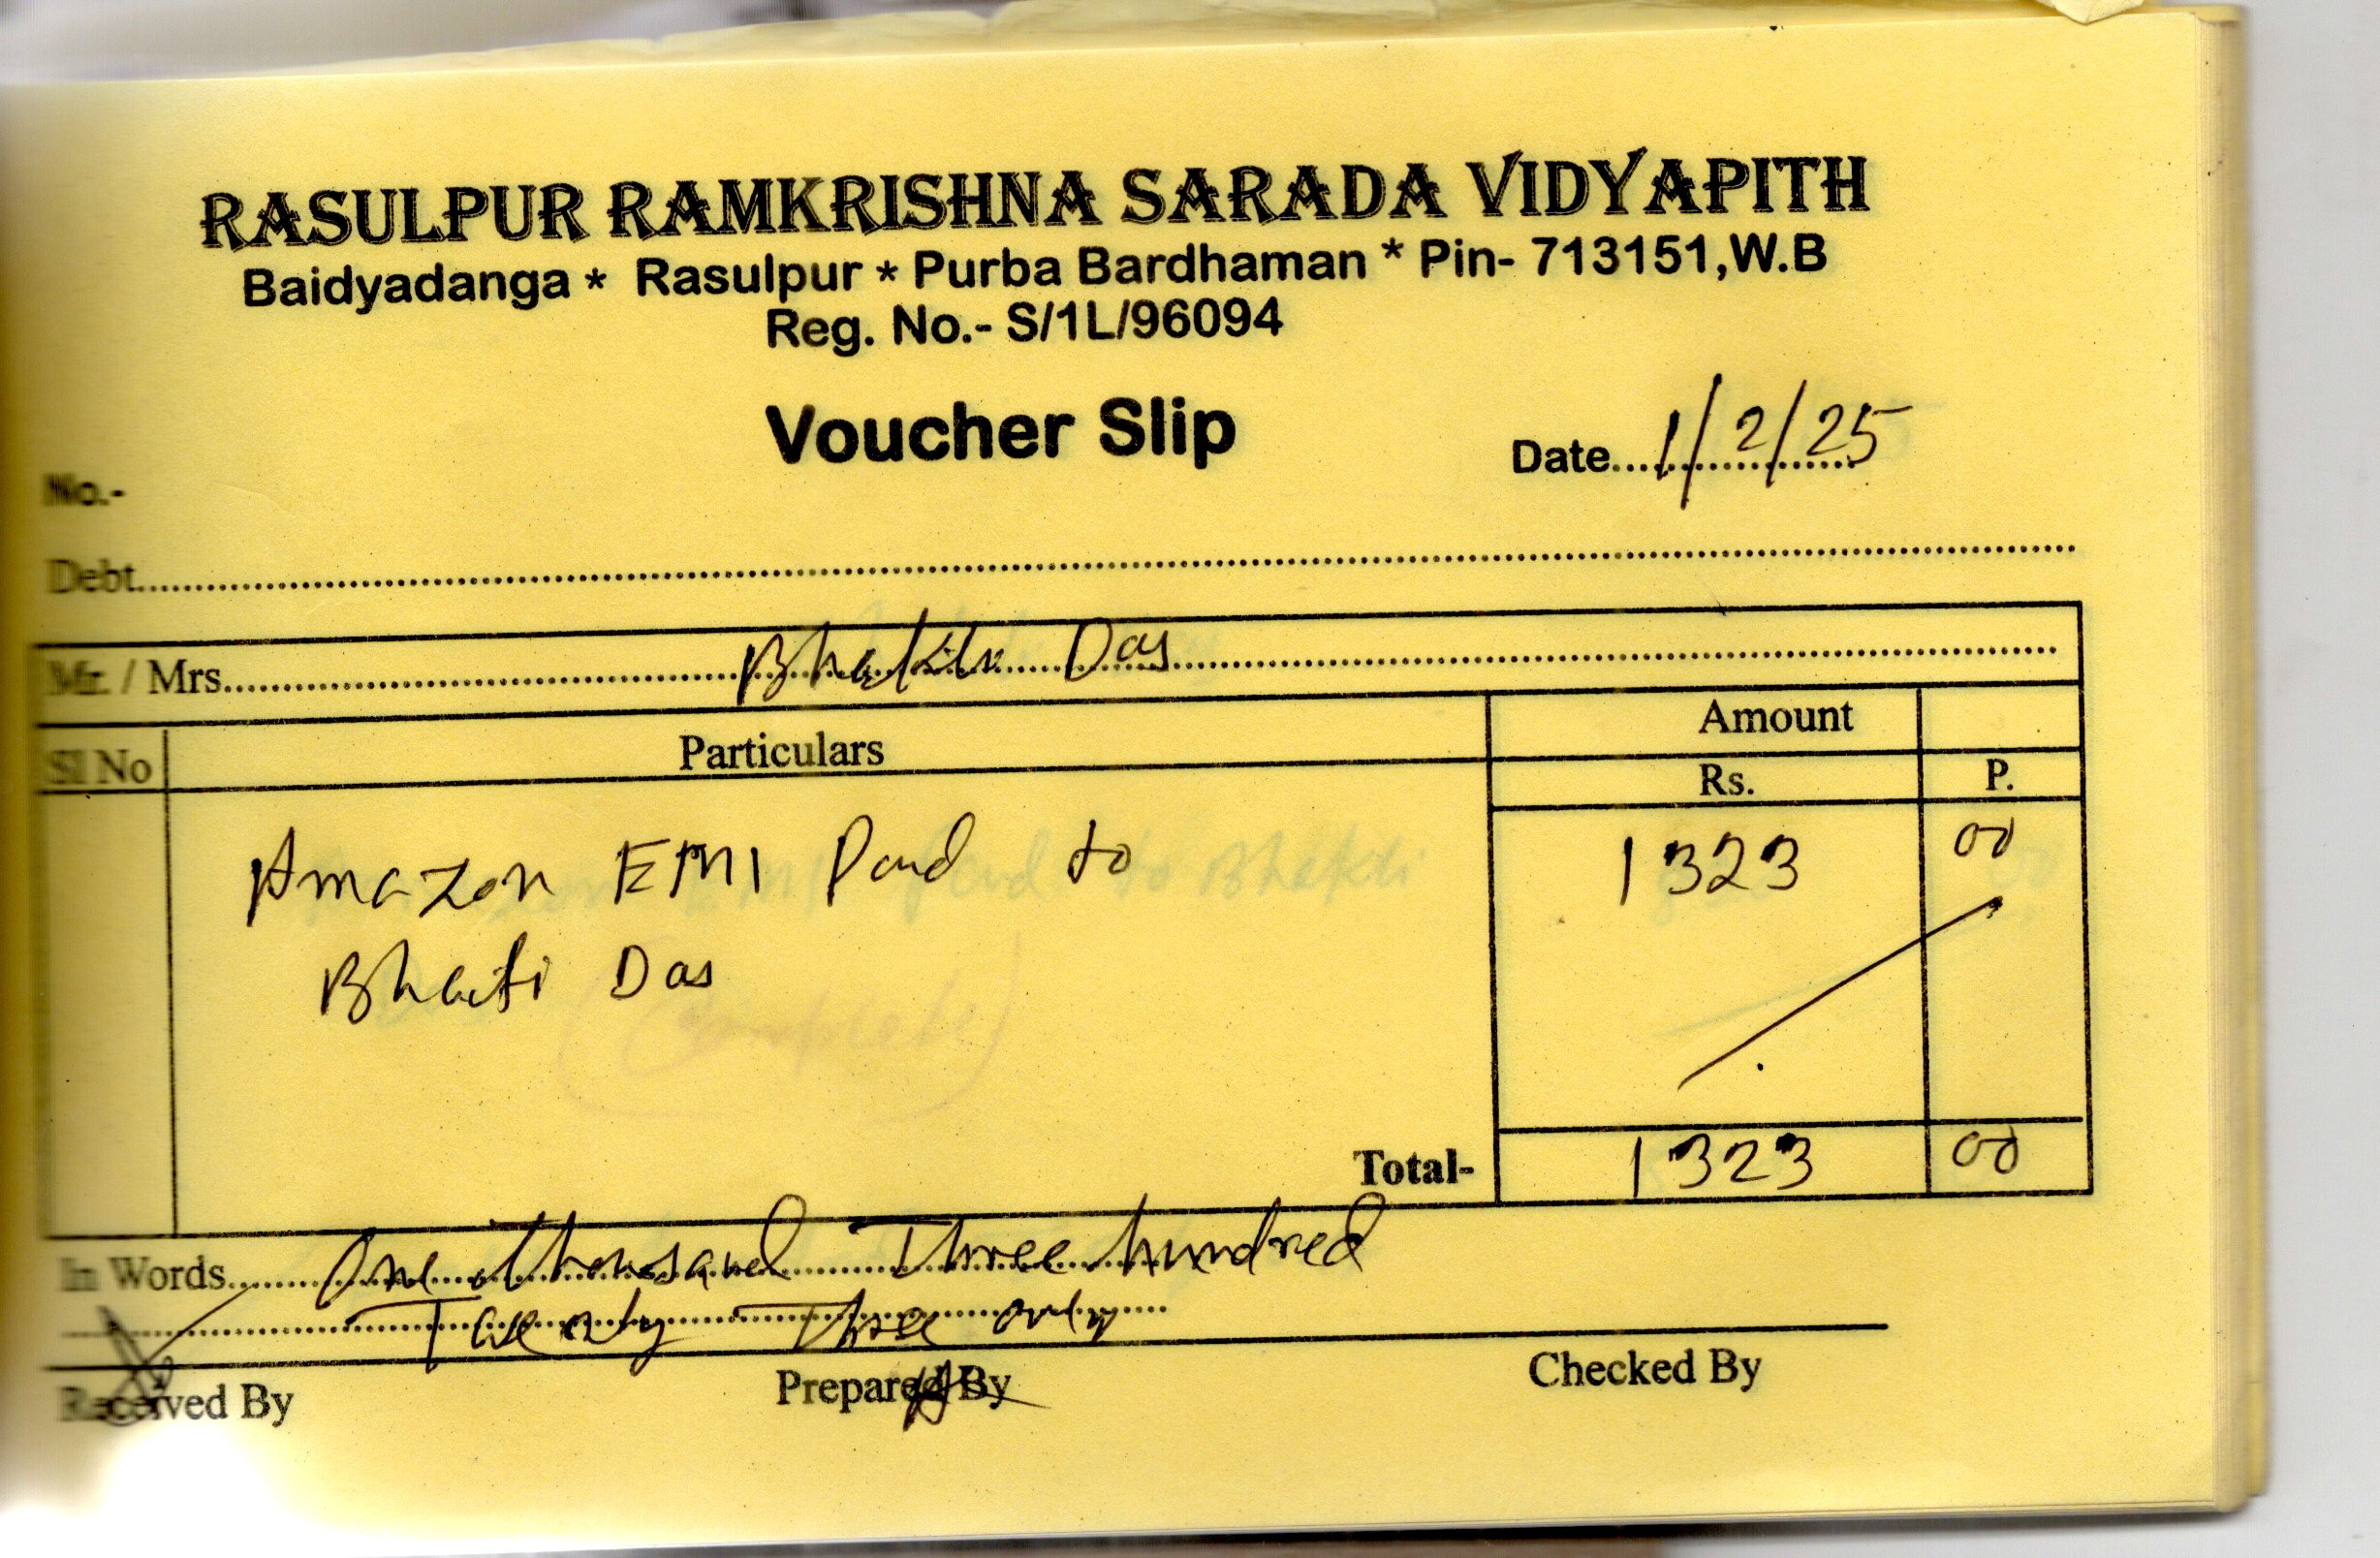 RASULPUR RAMKRISHNA SARADA VIDYAPITH
Baidyadanga * Rasulpur * Purba Bardhaman * Pin- 713151,W.B
Reg. No.- S/1L/96094
Voucher Slip
Date...1/2/25
No.-
Debt
Mr. / Mrs. Bhakti Das
Sl No Particulars Amount
Rs. P.
Amazon EMI Paid to 1323 00
Bhakti Das
Total- 1323 00
In Words One thousand Three hundred
Twenty Three only
Received By Prepared By Checked By